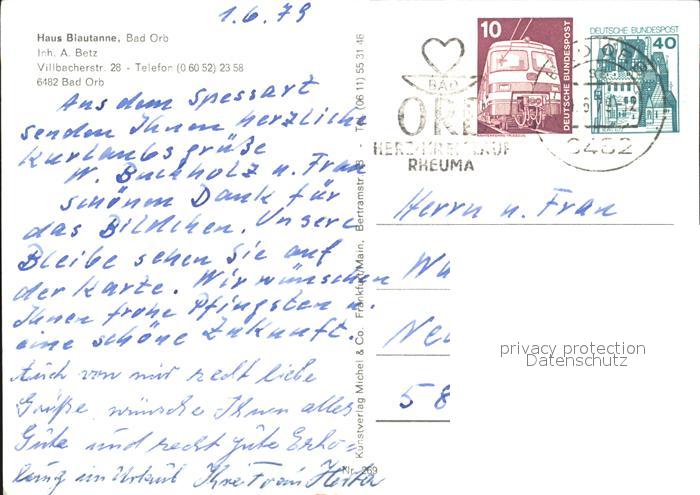 1.6.79
Haus Blautanne, Bad Orb
Inh. A. Betz
Villbacherstr. 28 - Telefon (0 60 52) 23 58
6482 Bad Orb
Aus dem Spessart
senden Ihnen herzliche
Kurlaubsgrüße
W. Buchholz u. Frau
schönen Dank für
das Bildchen. Unsere
Bleibe sehen Sie auf
der Karte. Wir wünschen
Ihnen frohe Pfingsten u.
eine schöne Zukunft.
Auch von mir recht liebe
Grüße, wünsche Ihnen alles
Gute und recht gute Erho=
lung im Urlaub Ihre Frau Herta
Kunstverlag Michel & Co. Frankfurt/Main, Bertramstr. 8 - Tel. (06 11) 55 31 46
Nr. 269
10
DEUTSCHE BUNDESPOST
DEUTSCHE BUNDESPOST
40
BAD
ORB
HERZ-KREISLAUF
RHEUMA
6482
Herrn u. Frau
58
privacy protection
Datenschutz